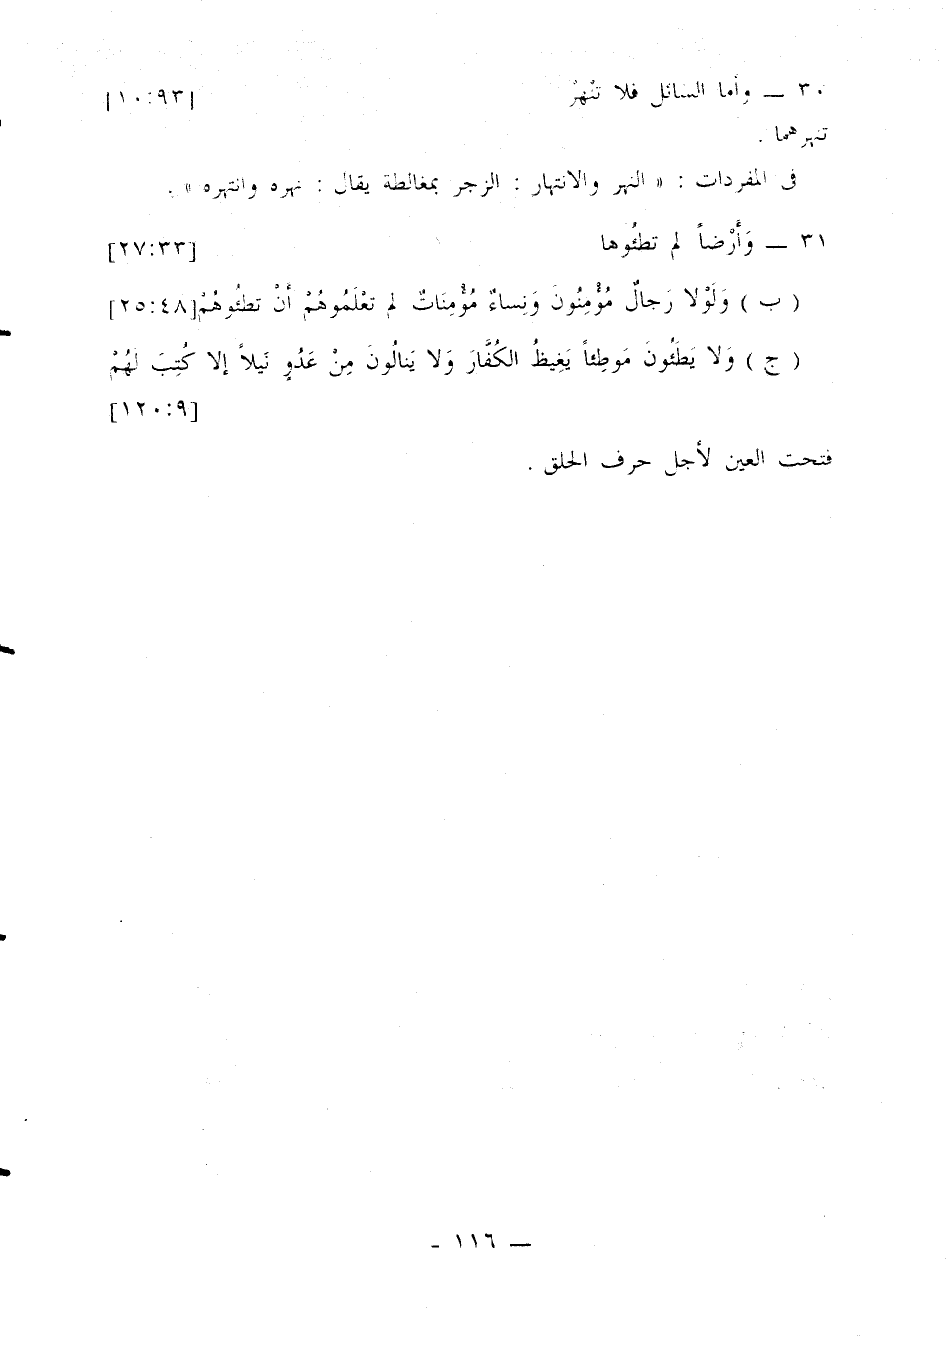 ٣٠ — وأما السائل فلا تَنْهَرْ [١٠:٩٣]
تنهرهما .
فى المفردات : « النهر والانتهار : الزجر بمغالظة يقال : نهره وانتهره » .
٣١ — وَأَرْضاً لم تطئُوها [٢٧:٣٣]
( ب ) وَلَوْلا رَجالٌ مُؤْمِنُونَ وَنِساءٌ مُؤْمِنَاتٌ لم تعْلَمُوهُمْ أنْ تطئُوهُمْ [٢٥:٤٨]
( ج ) وَلا يَطَئُونَ مَوطِئاً يَغِيظُ الكُفَّارَ وَلا يَنالُونَ مِنْ عَدُوٍ نَيلاً إلا كُتِبَ لَهُمْ
[١٢٠:٩]
فتحت العين لأجل حرف الحلق .
— ١١٦ -